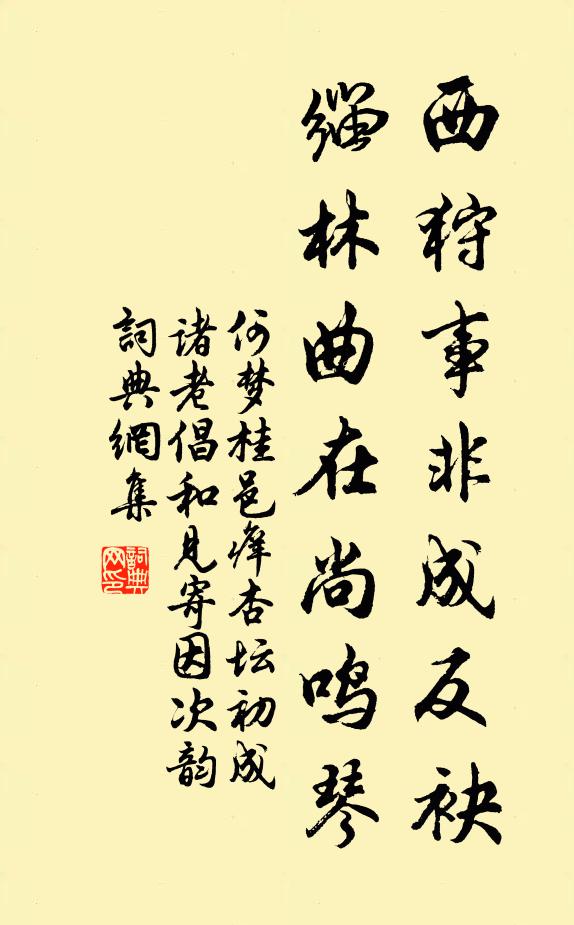 西狩事非成反袂
缁林曲在尚鸣琴
何梦桂邑痒杏坛初成
诸老倡和见寄因次韵
詞典網集
詞典網印